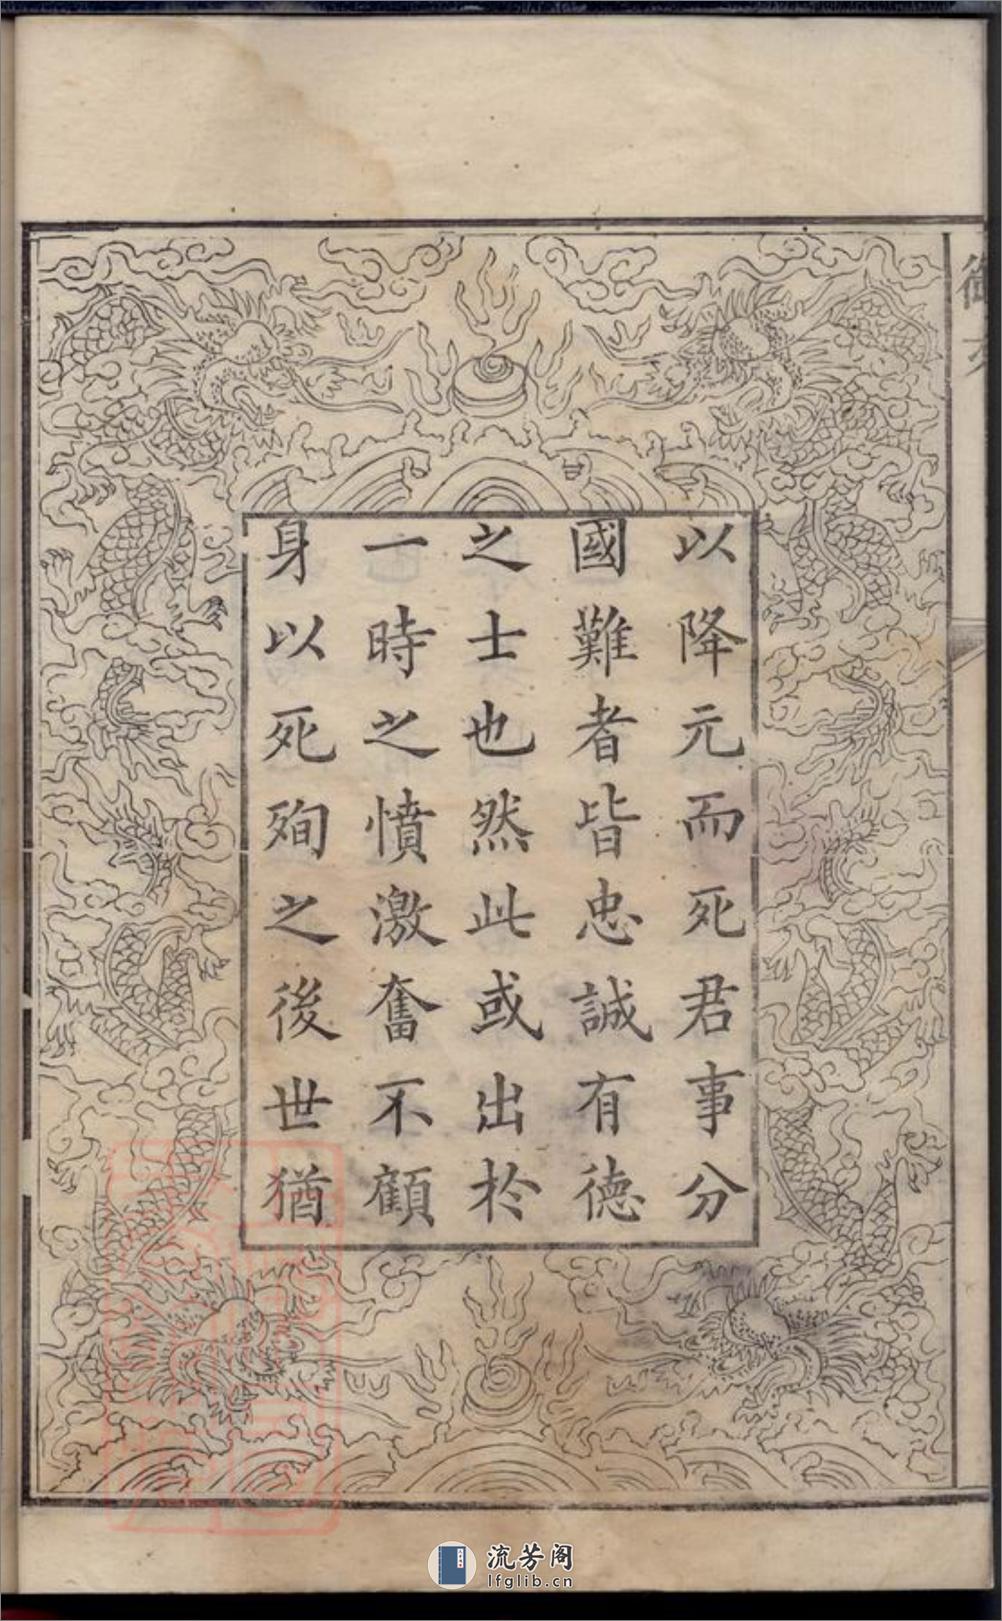 以降元而死君事分
國難者皆忠誠有德
之士也然此或出於
一時之憤激奮不顧
身以死殉之後世猶
流芳阁
lfglib.cn